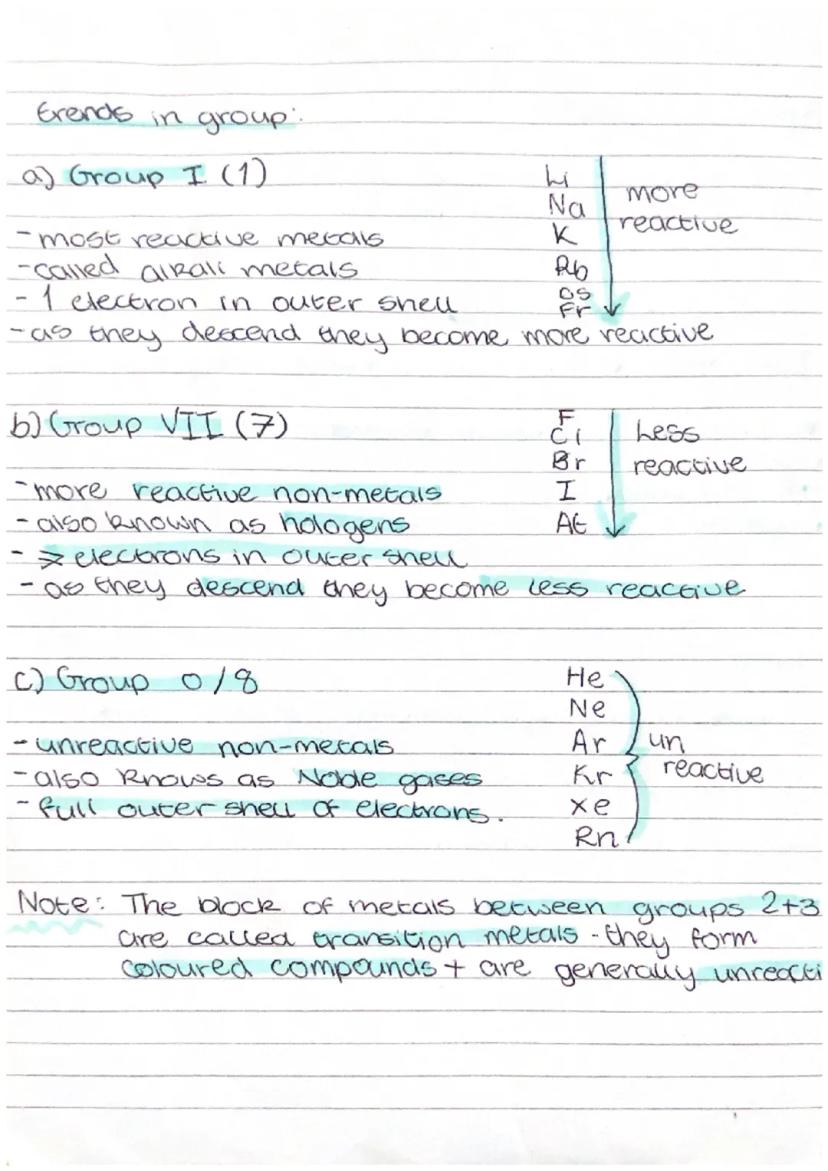 trends in group:
a) Group I (1)
Li
Na
K
Rb
Cs
Fr
more
reactive
- most reactive metals
- called alkali metals
- 1 electron in outer shell
- as they descend they become more reactive
b) Group VII (7)
F
Cl
Br
I
At
Less
reactive
- more reactive non-metals
- also known as hologens
- 7 electrons in outer shell
- as they descend they become less reactive
c) Group 0/8
He
Ne
Ar
Kr
Xe
Rn
un
reactive
- unreactive non-metals
- also knows as Noble gases
- full outer shell of electrons.
Note: The block of metals between groups 2+3
are called transition metals - they form
coloured compounds + are generally unreacti